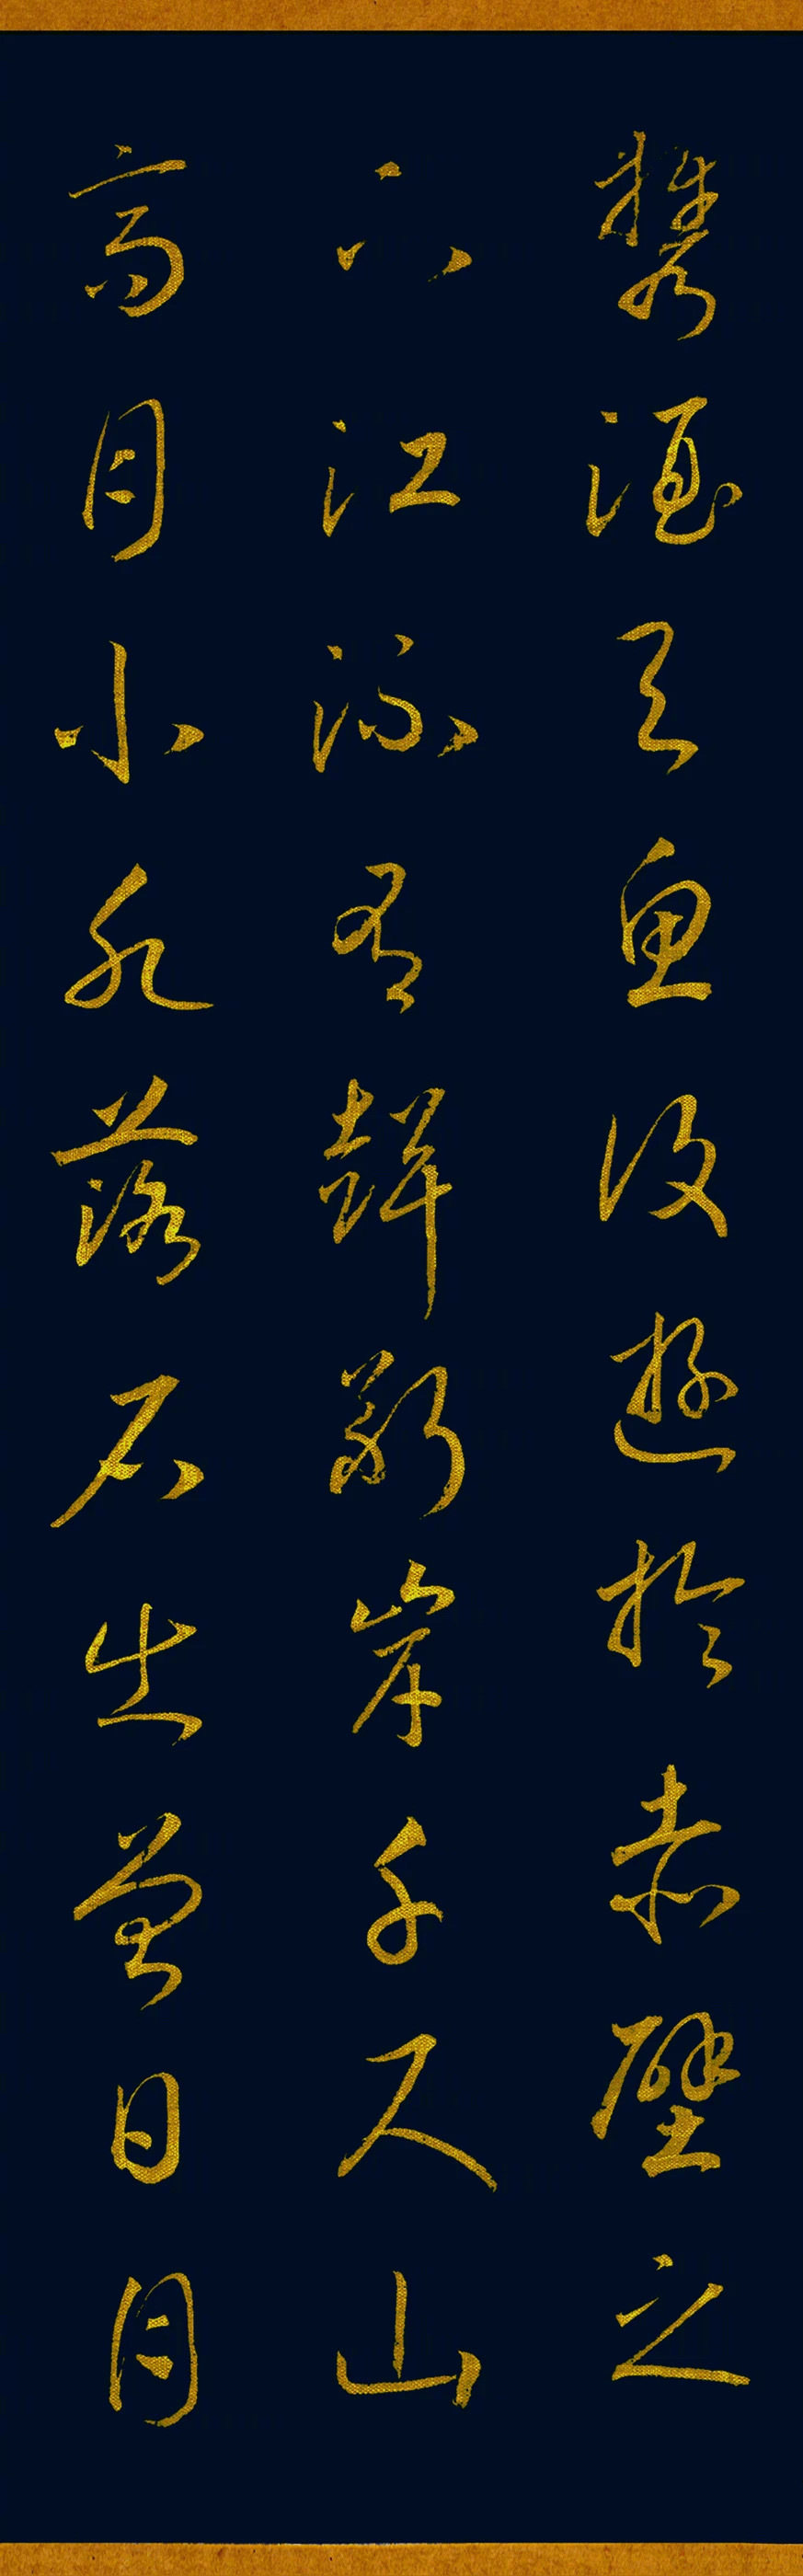 携酒與魚復遊於赤壁之
下江流有聲斷岸千尺山
高月小水落石出曾日月